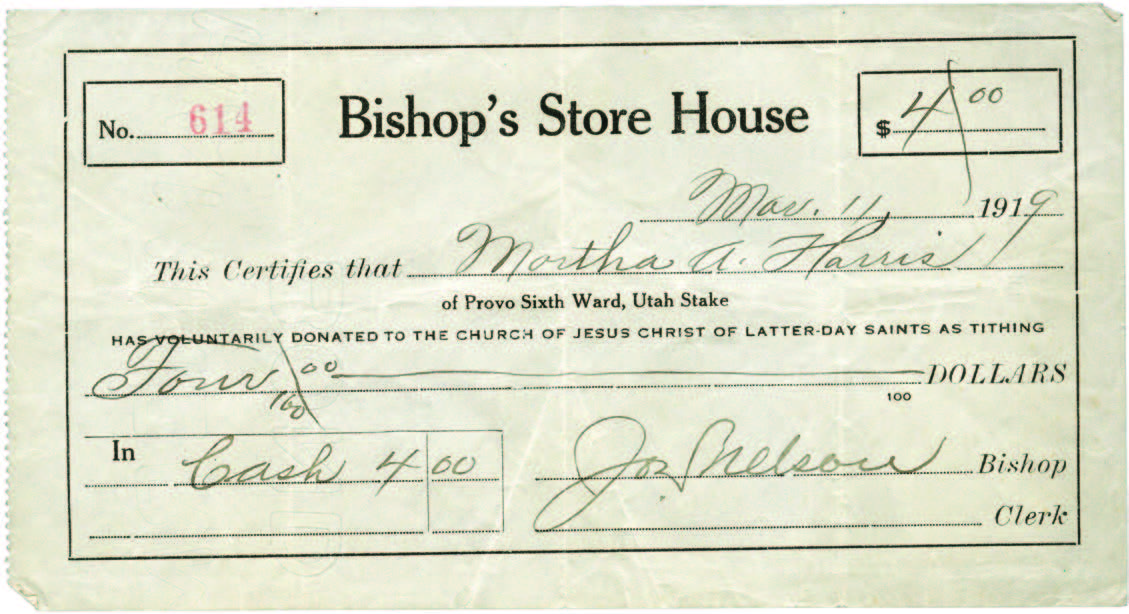 No. 614
Bishop's Store House
$ 4/00
Mar. 11, 1919
This Certifies that Martha A. Harris
of Provo Sixth Ward, Utah Stake
HAS VOLUNTARILY DONATED TO THE CHURCH OF JESUS CHRIST OF LATTER-DAY SAINTS AS TITHING
Four 00/100 DOLLARS
100
In Cash 4 00
Jos Nelson Bishop
Clerk